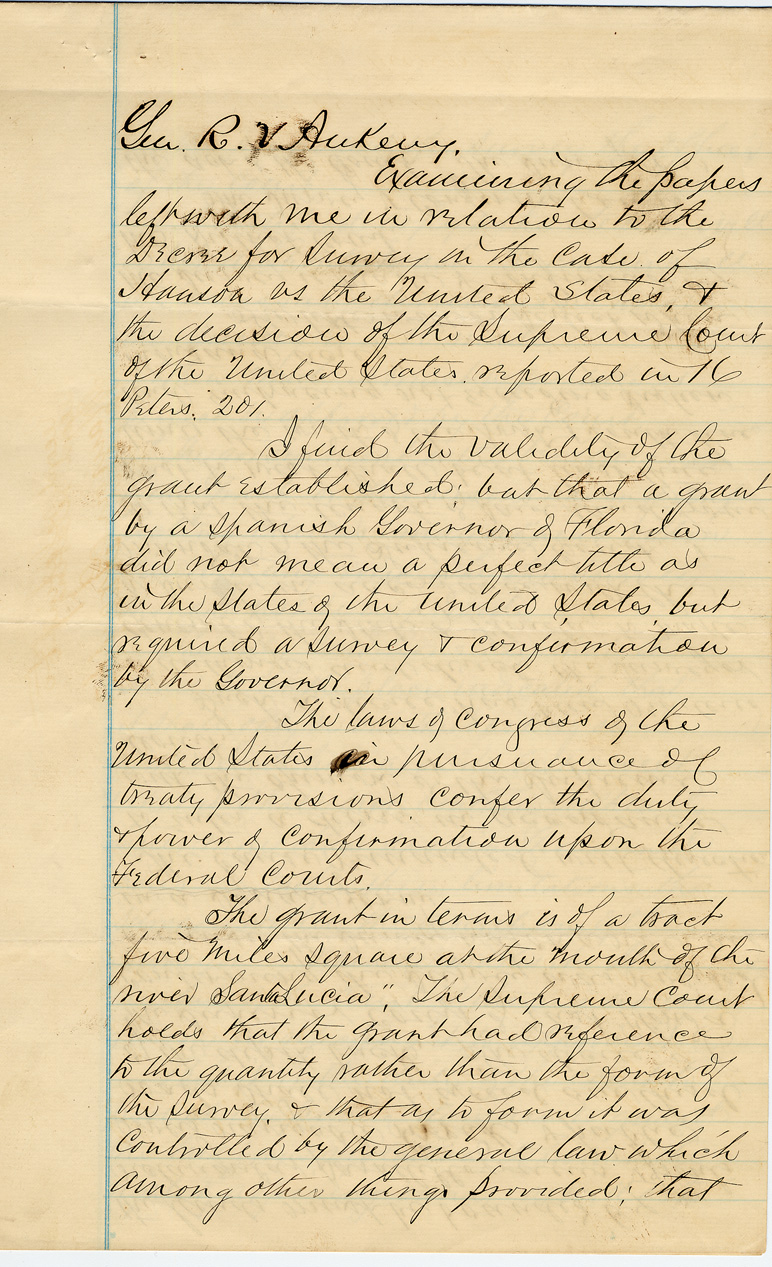 Gen. R. V Ankeny.
Examining the papers
left with me in relation to the
Decree for Survey in the Case of
Hanson vs the United States, &
the decision of the Supreme Court
of the United States. reported in 16
Peters. 201.
I find the validity of the
grant established: but that a grant
by a spanish Governor of Florida
did not mean a perfect title as
in the states of the United States, but
required a survey & confirmation
by the Governor.
The laws of Congress of the
United States in pursuance of
treaty provisions confer the duty
& power of confirmation upon the
Federal Courts.
The grant in terms is of a tract
five miles square at the mouth of the
river Santa Lucia". The Supreme Court
holds that the grant had reference
to the quantity rather than the form of
the survey. & that as to form it was
controlled by the general law which
among other things provided; that